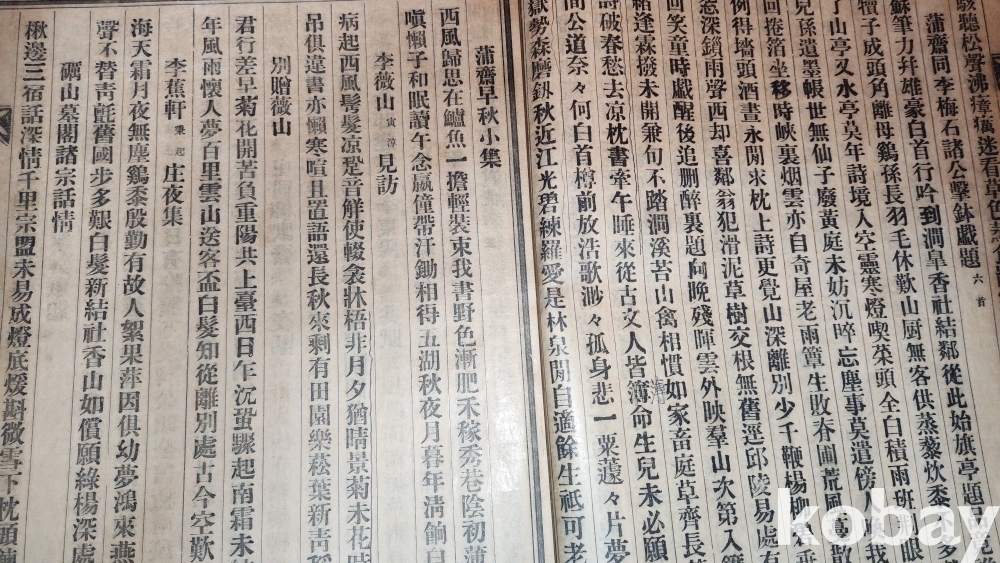 駭聽松聲沸瘴癘迷看草色
蒲齋同李梅石諸公擊鉢戱題 六首
蘇筆力幷雄豪白首行吟到澗皐香社結鄰從此始旗亭題
犢子成頭角離母鷄孫長羽毛休歎山厨無客供蒸藜炊黍
了山亭又水亭莫年詩境入空靈寒燈喫菜頭全白積雨班荆眼
兒孫遺墨帳世無仙子廢黃庭未妨沉晬忘塵事莫遣傍人
回捲箔坐移時峽裏烟雲亦自奇屋老雨蕈生敗脊圃荒風
例得墻頭酒晝永閒求枕上詩更覺山深離別少千鞭楊柳
窓深鎖雨聲西却喜鄰翁犯滑泥草樹交根無舊逕邱陵易處有
回笑童時戱醒後追删醉裏題向晚殘暉雲外映羣山次第入簾
絡逢霖撥未開兼句不踏澗溪苔山禽相慣如家畜庭草齊長
詩破春愁去凉枕書牽午睡來從古文人皆簿命生兒未必願
間公道奈々何白首樽前放浩歌渺々孤身悲一粟蘧々片夢
嶽勢森磨釼秋近江光碧練羅愛是林泉閒自適餘生祗可老
蒲齋早秋小集
西風歸思在鱸魚一擔輕裝束我書野色漸肥禾稼秀巷陰初薄
嗔懶子和眠讀午念羸僮帶汗鋤相得五湖秋夜月暮年淸餉自
李薇山 寅善 見訪
病起西風鬓髮凉跫音鮮使輟衾牀梧非月夕猶晴景菊未花時
吊俱違書亦懶寒暄且置語還長秋來剩有田園樂菘葉新靑
別贈薇山
君行差早菊花開苦負重陽共上臺西日乍沉蛩驟起南霜未
年風雨懷人夢百里雲山送客盃白髮知從離別處古今空歎
李蕉軒 秉起 庄夜集
海天霜月夜無塵鷄黍殷勤有故人絮果萍因俱幼夢鴻來燕
聲不替靑氈舊國步多艱白髮新結社香山如償願綠楊深處
礪山墓閣諸宗話情
楸邊三宿話深情千里宗盟未易成燈底煖斟微雪下枕頭
kobay